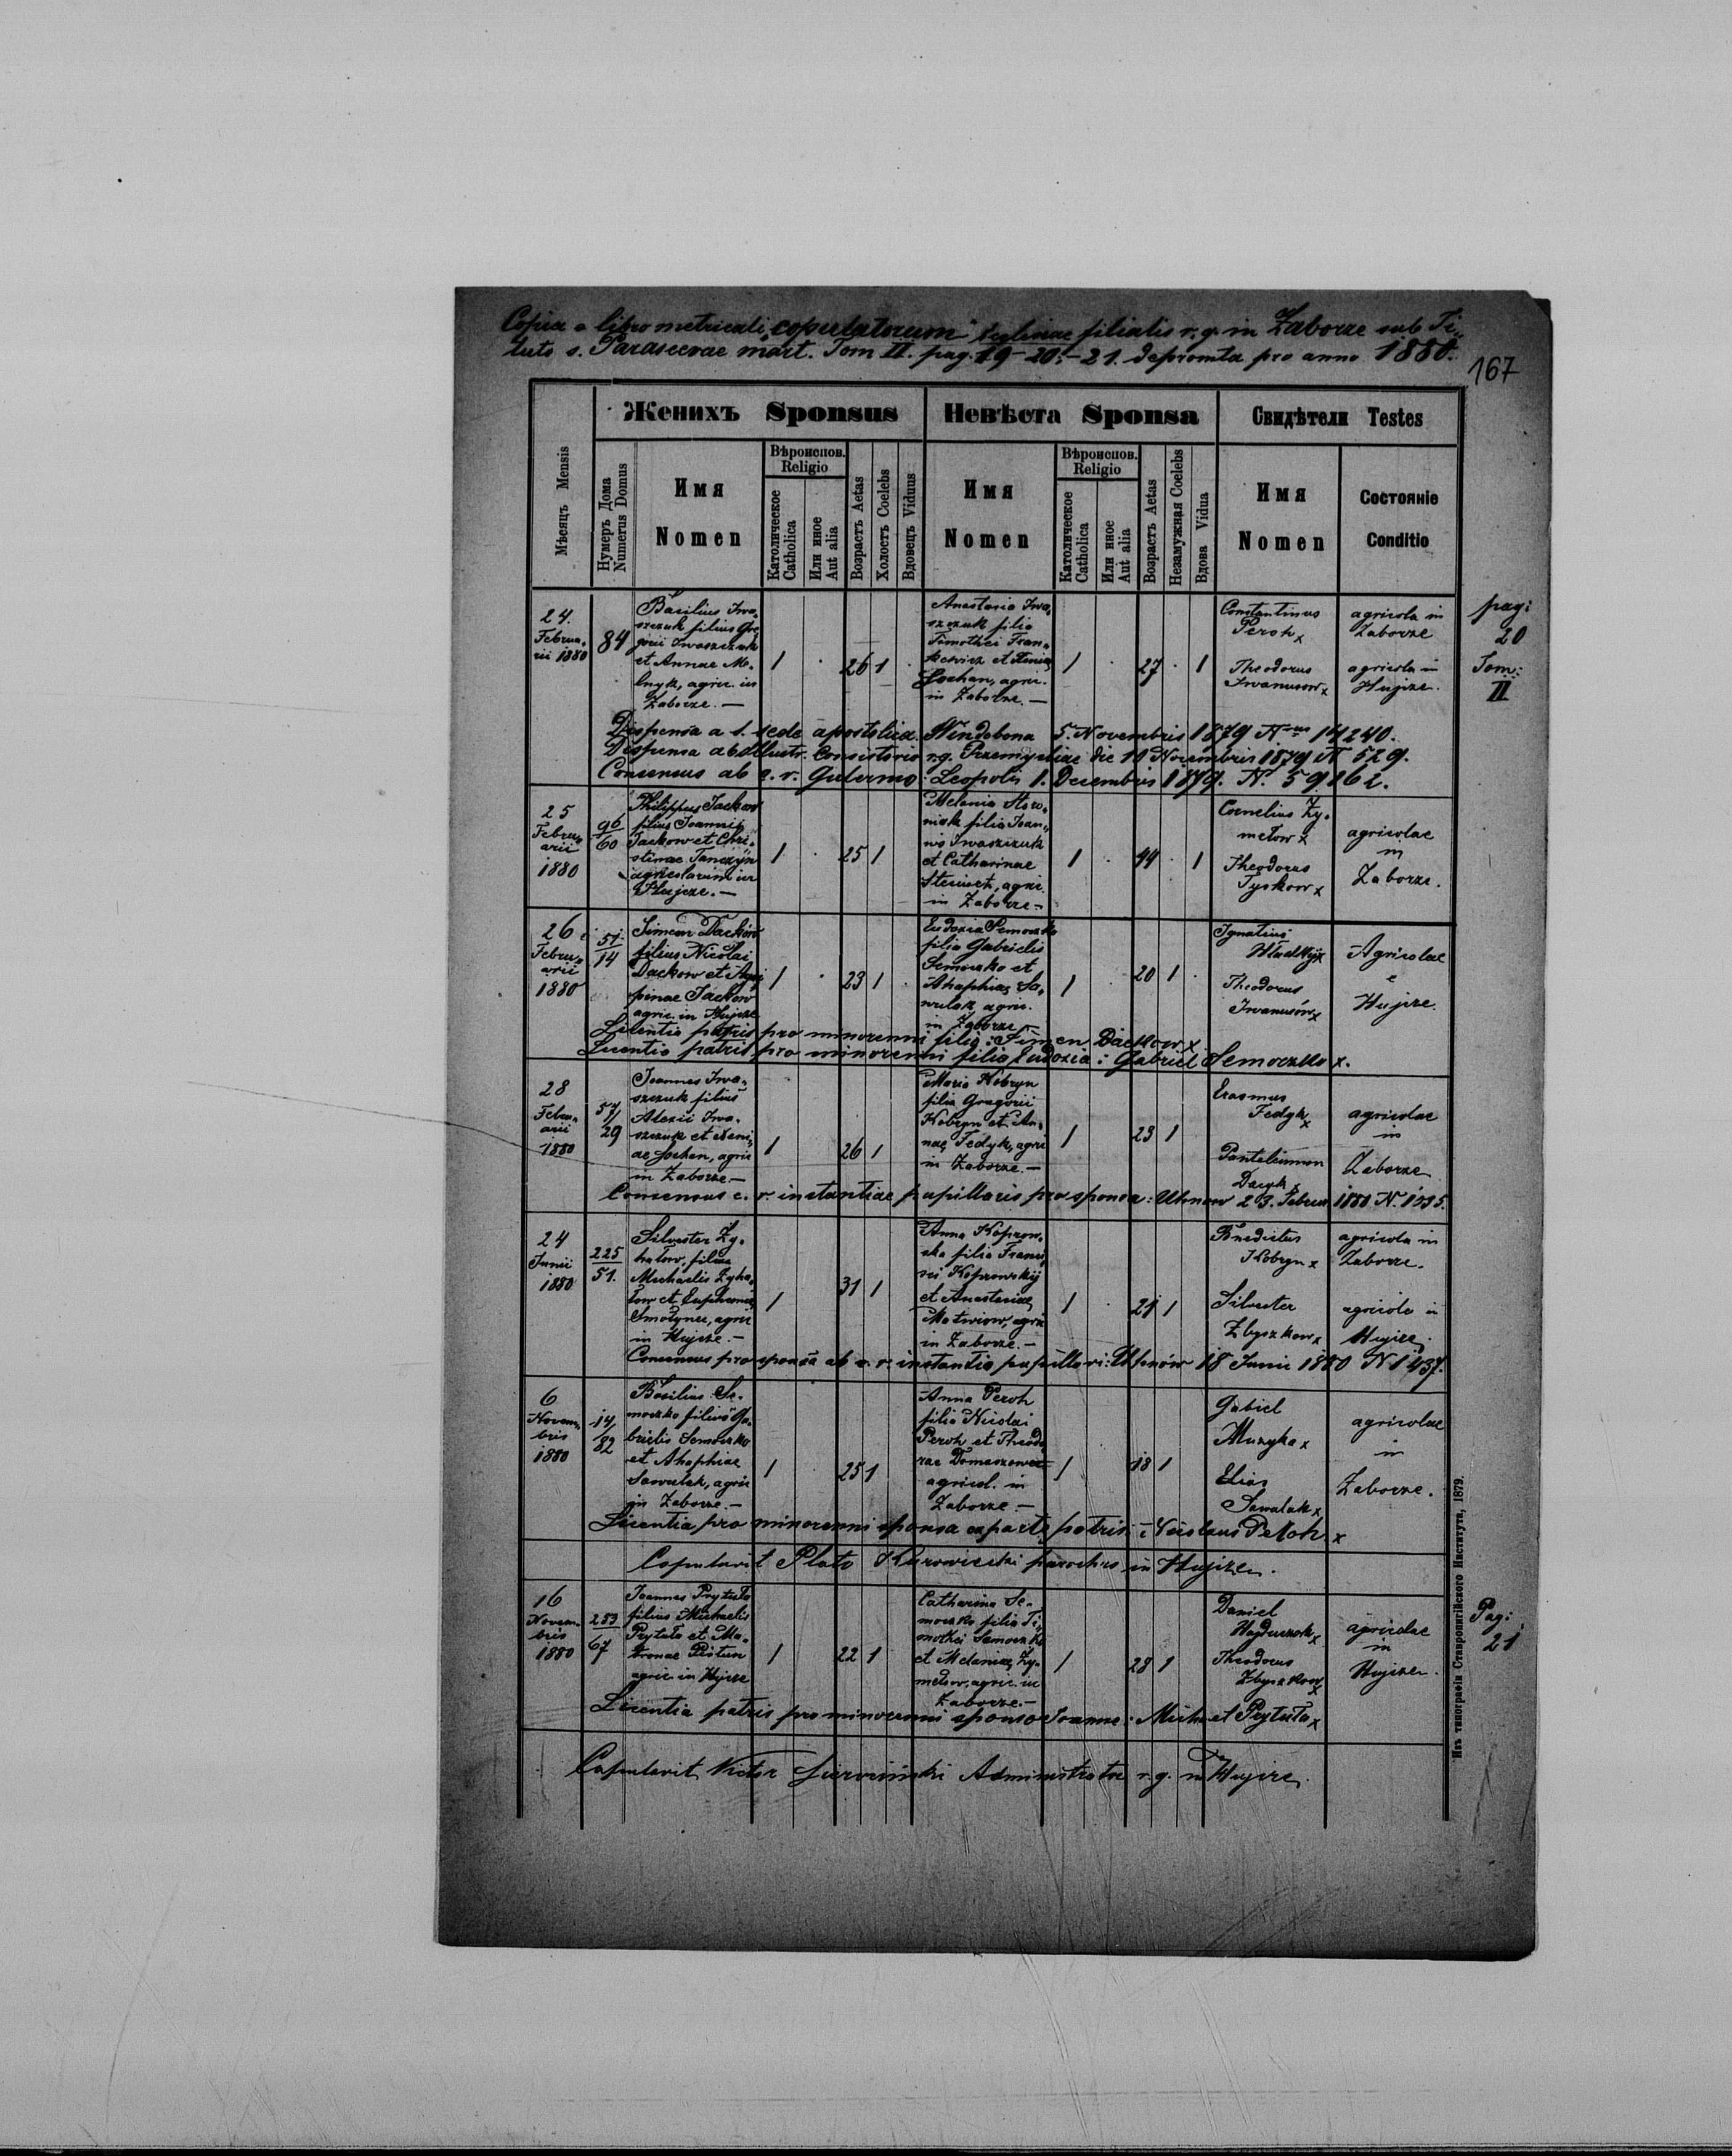 Copia e libro metricali "copulatorum" ecclesiae filialis r. g. in Zaborze sub Ti„
tulo s. Parascevae mart. Tom II. pag. 19–20–21. depromta pro anno 1880.
167
Женихъ Sponsus
Невѣста Sponsa
Свидѣтели Testes
Мѣсяцъ Mensis
Нумеръ Дома
Numerus Domus
Имя
Nomen
Вѣроиспов.
Religio
Католическое
Catholica
Или иное
Aut alia
Возрастъ Aetas
Холостъ Coelebs
Вдовецъ Viduus
Имя
Nomen
Вѣроиспов.
Religio
Католическое
Catholica
Или иное
Aut alia
Возрастъ Aetas
Незамужная Coelebs
Вдова Vidua
Имя
Nomen
Состояніе
Conditio
24.
Februa„
rii 1880
84
Basilius Iwa„
szczuk filius Gre„
gorii Iwaszczuk
et Annae Me„
lnyk, agric. in
Zaborze. —
1
26 1
Anastasia Iwa„
szczuk filia
Timothei Fran„
kewicz et
Lochan, agric.
in Zaborze. —
1
27
1
Constantinus
Peroh x
Theodorus
Iwanusow x
agricola in
Zaborze
agricola in
Hujcze.
pag:
20
Tom:
II
Dispensa a s. sede apostolica Vindobona 5. Novembris 1879 11240.
Dispensa ab Illustr. Consistorio r. g. Przemysliae die 10 Novembris 1879 N 529.
Consensus ab c. r. Gubernio: Leopolis 1. Decembris 1879. N. 59862.
25
Febru„
arii
1880
96
60
Philippus Jackow
filius Joannis
Jackow et Chri„
stinae Tanczyn
agricolarum in
Hujcze. —
1
25 1
Melania
filia Joan„
nis Iwaszczuk
et Catharinae
agric.
in Zaborze —
1
44
1
Cornelius Zy„
metow x
Theodorus
Tyskow x
agricolae
in
Zaborze.
26
Febru„
arii
1880
51
14
Simeon Dackow
filius Nicolai
Dackow et Agri
pinae Jackow
agric. in Hujcze
1
23 1
Eudoxia Semoczko
filia Gabrielis
Semoczko et
Ahaphiae Sa„
wulak agric.
in Zaborze —
1
20 1
Ignatius
x
Theodorus
Iwanusów x
Agricolae
Hujcze.
Licentia patris pro minorenni filio: Simen Dackow x
Licentia patris pro minorenni filia Eudoxia: Gabriel Semoczko x.
28
Febru„
arii
1880
57
29
Joannes Iwa„
szczuk filius
Alexii Iwa„
szczuk et Xeni„
ae Lochan, agric
in Zaborze —
1
26 1
Maria Kobryn
filia Gregorii
Kobryn et An„
nae Fedyk, agric
in Zaborze. —
1
23 1
Erasmus
Fedyk x
Panteleimon
Dacyk x
agricolae
in
Zaborze
Consensus c. r. instantiae pupillaris pro sponsa: Uhnow 23. Februar 1880 N. 1335.
24
Junii
1880
225
51.
Silvester Zy„
hałow, filius
Michaelis Zyha„
łow et Euphemiae
Smołynec, agric
in Hujcze. —
1
31 1
Anna Koprow„
ska filia Franci„
sci Koprowskij
et Anastasiae
Matwiow, agric
in Zaborze. —
1
21 1
Benedictus
Kobryn x
Silvester
Zbyszkow x
agricola in
Zaborze.
agricola in
Hujcze.
Consensus pro sponsa ab c. r. instantia pupillari: Uhnów 18 Junii 1880 N 1437.
6
Novem„
bris
1880
14
82
Basilius Se„
moczko filius Ga„
brielis Semoczko
et Ahaphiae
Sawulak, agric
in Zaborze. —
1
25 1
Anna Peroh
filia Nicolai
Peroh et Theodo
rae
agricol. in
Zaborze —
1
18 1
Gabiel
Muzyka x
Elias
Sawulak x
agricolae
in
Zaborze.
Licentia pro minorenni sponsa ex parte patris: Peroh x
Copulavit Plato Kurowiecki parochus in Hujcze.
16
Novem„
bris
1880
283
67
Joannes Prytuła
filius Michaelis
Prytuła et Ma„
tronae Pistun
agric. in Hujcze
1
22 1
Catharina Se„
moczko filia Ti„
mothei Semoczko
et Melaniae Zy„
metow, agric. in
Zaborze. —
1
28 1
Daniel
Hajduczok x
Theodorus
Zbyszkow x
agricolae
in
Hujcze.
Pag:
21
Licentia patris pro minorenni sponso Joanne: Michael Prytuła x
Copulavit Victor Administrator r. g. in Hujcze.
Изъ типографіи Ставропигійского Института, 1879.